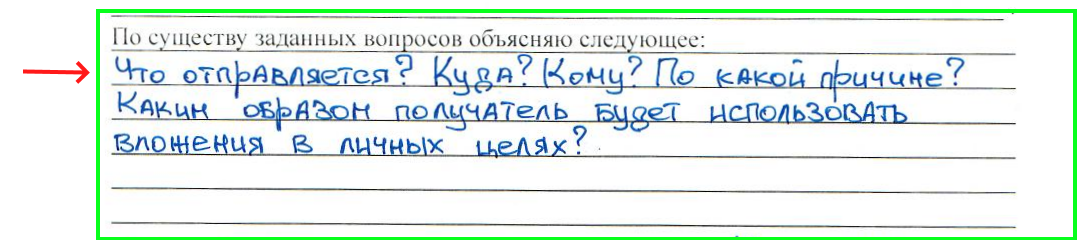 По существу заданных вопросов объясняю следующее:
Что отправляется? Куда? Кому? По какой причине?
Каким образом получатель будет использовать
вложения в личных целях?